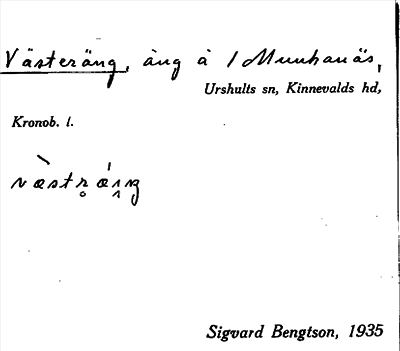 Västeräng, äng å 1 Munhanäs,
Urshults sn, Kinnevalds hd,
Kronob. l.
Sigvard Bengtson, 1935